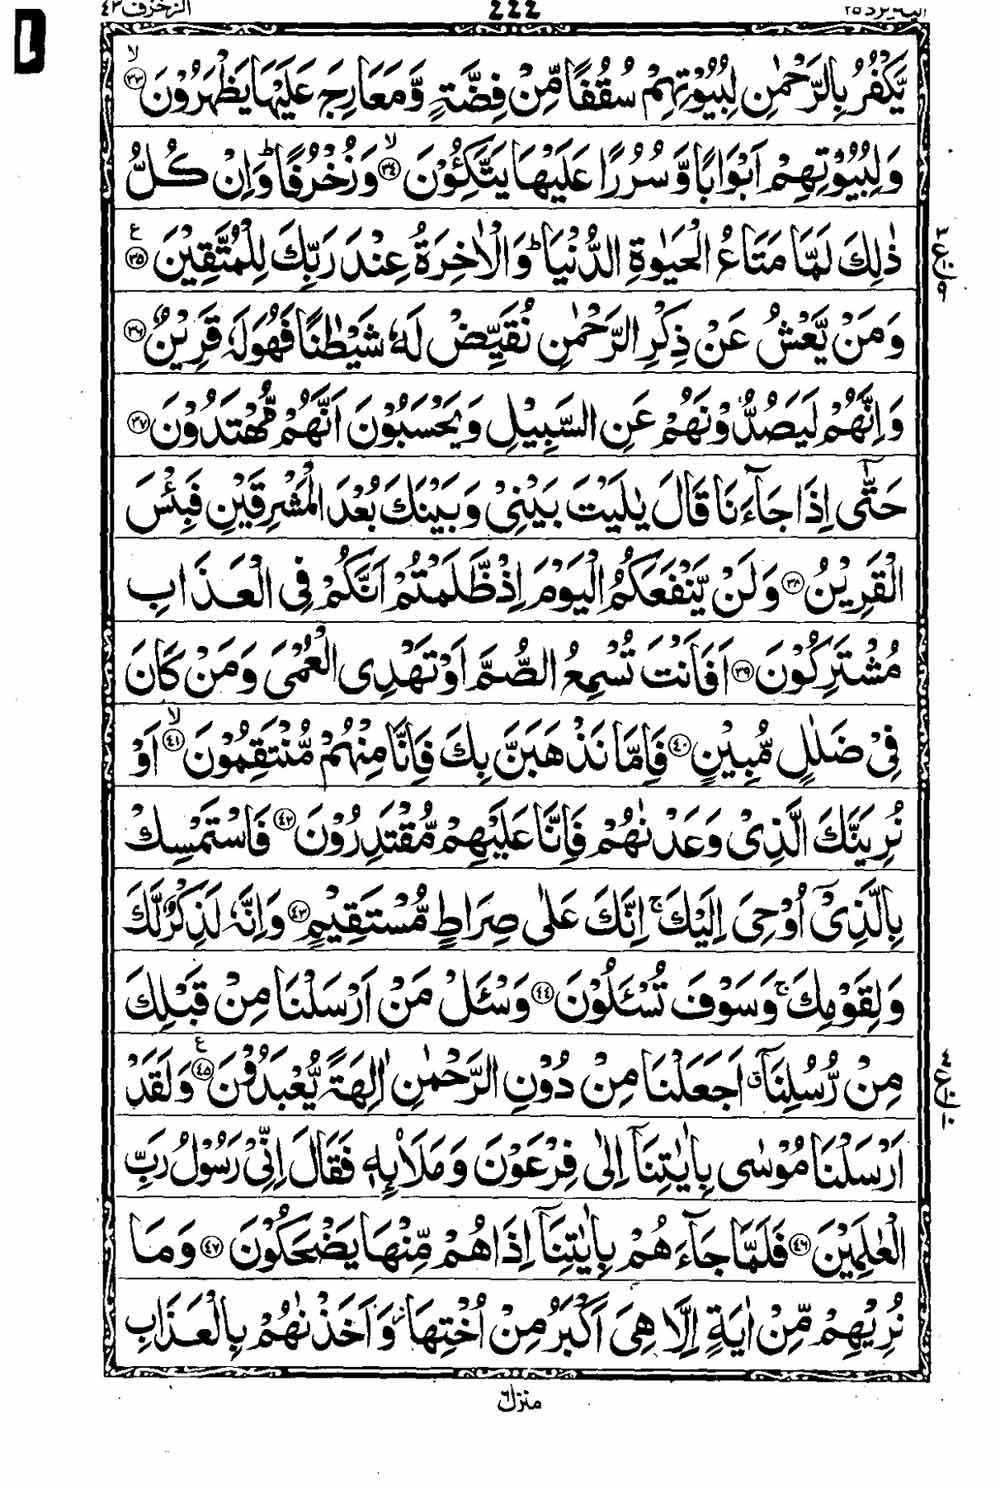 الزخرف ٤٣
٤٤٤
اليه يرد ٢٥
يَّكْفُرُ بِالرَّحْمٰنِ لِبُيُوْتِهِمْ سُقُفًا مِّنْ فِضَّةٍ وَّمَعَارِجَ عَلَيْهَا يَظْهَرُوْنَ ﴿٣٣﴾ ۙ
وَلِبُيُوْتِهِمْ اَبْوَابًا وَّسُرُرًا عَلَيْهَا يَتَّكِـُٔوْنَ ﴿٣٤﴾ ۙ وَزُخْرُفًا ؕ وَاِنْ كُلُّ
ذٰلِكَ لَمَّا مَتَاعُ الْحَيٰوةِ الدُّنْيَا ؕ وَالْاٰخِرَةُ عِنْدَ رَبِّكَ لِلْمُتَّقِيْنَ ﴿٣٥﴾ ع
وَمَنْ يَّعْشُ عَنْ ذِكْرِ الرَّحْمٰنِ نُقَيِّضْ لَهٗ شَيْطٰنًا فَهُوَ لَهٗ قَرِيْنٌ ﴿٣٦﴾
وَاِنَّهُمْ لَيَصُدُّوْنَهُمْ عَنِ السَّبِيْلِ وَيَحْسَبُوْنَ اَنَّهُمْ مُّهْتَدُوْنَ ﴿٣٧﴾
حَتّٰٓى اِذَا جَآءَنَا قَالَ يٰلَيْتَ بَيْنِيْ وَبَيْنَكَ بُعْدَ الْمَشْرِقَيْنِ فَبِئْسَ
الْقَرِيْنُ ﴿٣٨﴾ وَلَنْ يَّنْفَعَكُمُ الْيَوْمَ اِذْ ظَّلَمْتُمْ اَنَّكُمْ فِي الْعَذَابِ
مُشْتَرِكُوْنَ ﴿٣٩﴾ اَفَاَنْتَ تُسْمِعُ الصُّمَّ اَوْ تَهْدِي الْعُمْيَ وَمَنْ كَانَ
فِيْ ضَلٰلٍ مُّبِيْنٍ ﴿٤٠﴾ فَاِمَّا نَذْهَبَنَّ بِكَ فَاِنَّا مِنْهُمْ مُّنْتَقِمُوْنَ ﴿٤١﴾ ۙ اَوْ
نُرِيَنَّكَ الَّذِيْ وَعَدْنٰهُمْ فَاِنَّا عَلَيْهِمْ مُّقْتَدِرُوْنَ ﴿٤٢﴾ فَاسْتَمْسِكْ
بِالَّذِيْٓ اُوْحِيَ اِلَيْكَ ۚ اِنَّكَ عَلٰى صِرَاطٍ مُّسْتَقِيْمٍ ﴿٤٣﴾ وَاِنَّهٗ لَذِكْرٌ لَّكَ
وَلِقَوْمِكَ ۚ وَسَوْفَ تُسْـَٔلُوْنَ ﴿٤٤﴾ وَسْـَٔلْ مَنْ اَرْسَلْنَا مِنْ قَبْلِكَ
مِنْ رُّسُلِنَآ ۖ اَجَعَلْنَا مِنْ دُوْنِ الرَّحْمٰنِ اٰلِهَةً يُّعْبَدُوْنَ ﴿٤٥﴾ ع وَلَقَدْ
اَرْسَلْنَا مُوْسٰى بِاٰيٰتِنَآ اِلٰى فِرْعَوْنَ وَمَلَا۟ئِهٖ فَقَالَ اِنِّيْ رَسُوْلُ رَبِّ
الْعٰلَمِيْنَ ﴿٤٦﴾ فَلَمَّا جَآءَهُمْ بِاٰيٰتِنَآ اِذَا هُمْ مِّنْهَا يَضْحَكُوْنَ ﴿٤٧﴾ وَمَا
نُرِيْهِمْ مِّنْ اٰيَةٍ اِلَّا هِيَ اَكْبَرُ مِنْ اُخْتِهَا ۡ وَاَخَذْنٰهُمْ بِالْعَذَابِ
منزل ٦